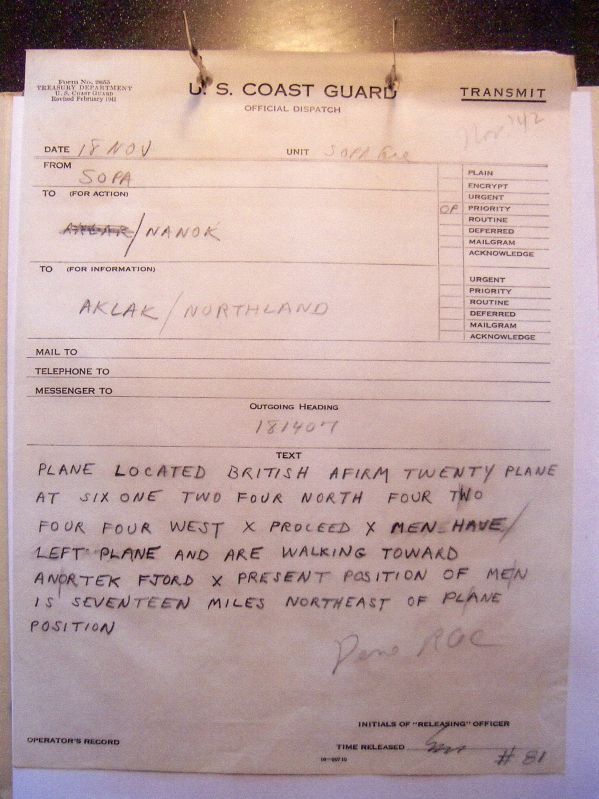 Form No. 2653
TREASURY DEPARTMENT
U. S. COAST GUARD
Revised February 1941
U. S. COAST GUARD
OFFICIAL DISPATCH
TRANSMIT
Nov '42
DATE 18 NOV
UNIT SOPA
FROM SOPA
TO (FOR ACTION)
/NANOK
PLAIN
ENCRYPT
URGENT
OP PRIORITY
ROUTINE
DEFERRED
MAILGRAM
ACKNOWLEDGE
TO (FOR INFORMATION)
AKLAK/NORTHLAND
URGENT
PRIORITY
ROUTINE
DEFERRED
MAILGRAM
ACKNOWLEDGE
MAIL TO
TELEPHONE TO
MESSENGER TO
OUTGOING HEADING
181407
TEXT
PLANE LOCATED BRITISH AFIRM TWENTY PLANE
AT SIX ONE TWO FOUR NORTH FOUR TWO
FOUR FOUR WEST X PROCEED X MEN HAVE
LEFT PLANE AND ARE WALKING TOWARD
ANORTEK FJORD X PRESENT POSITION OF MEN
IS SEVENTEEN MILES NORTHEAST OF PLANE
POSITION
INITIALS OF "RELEASING" OFFICER
OPERATOR'S RECORD
TIME RELEASED
# 81